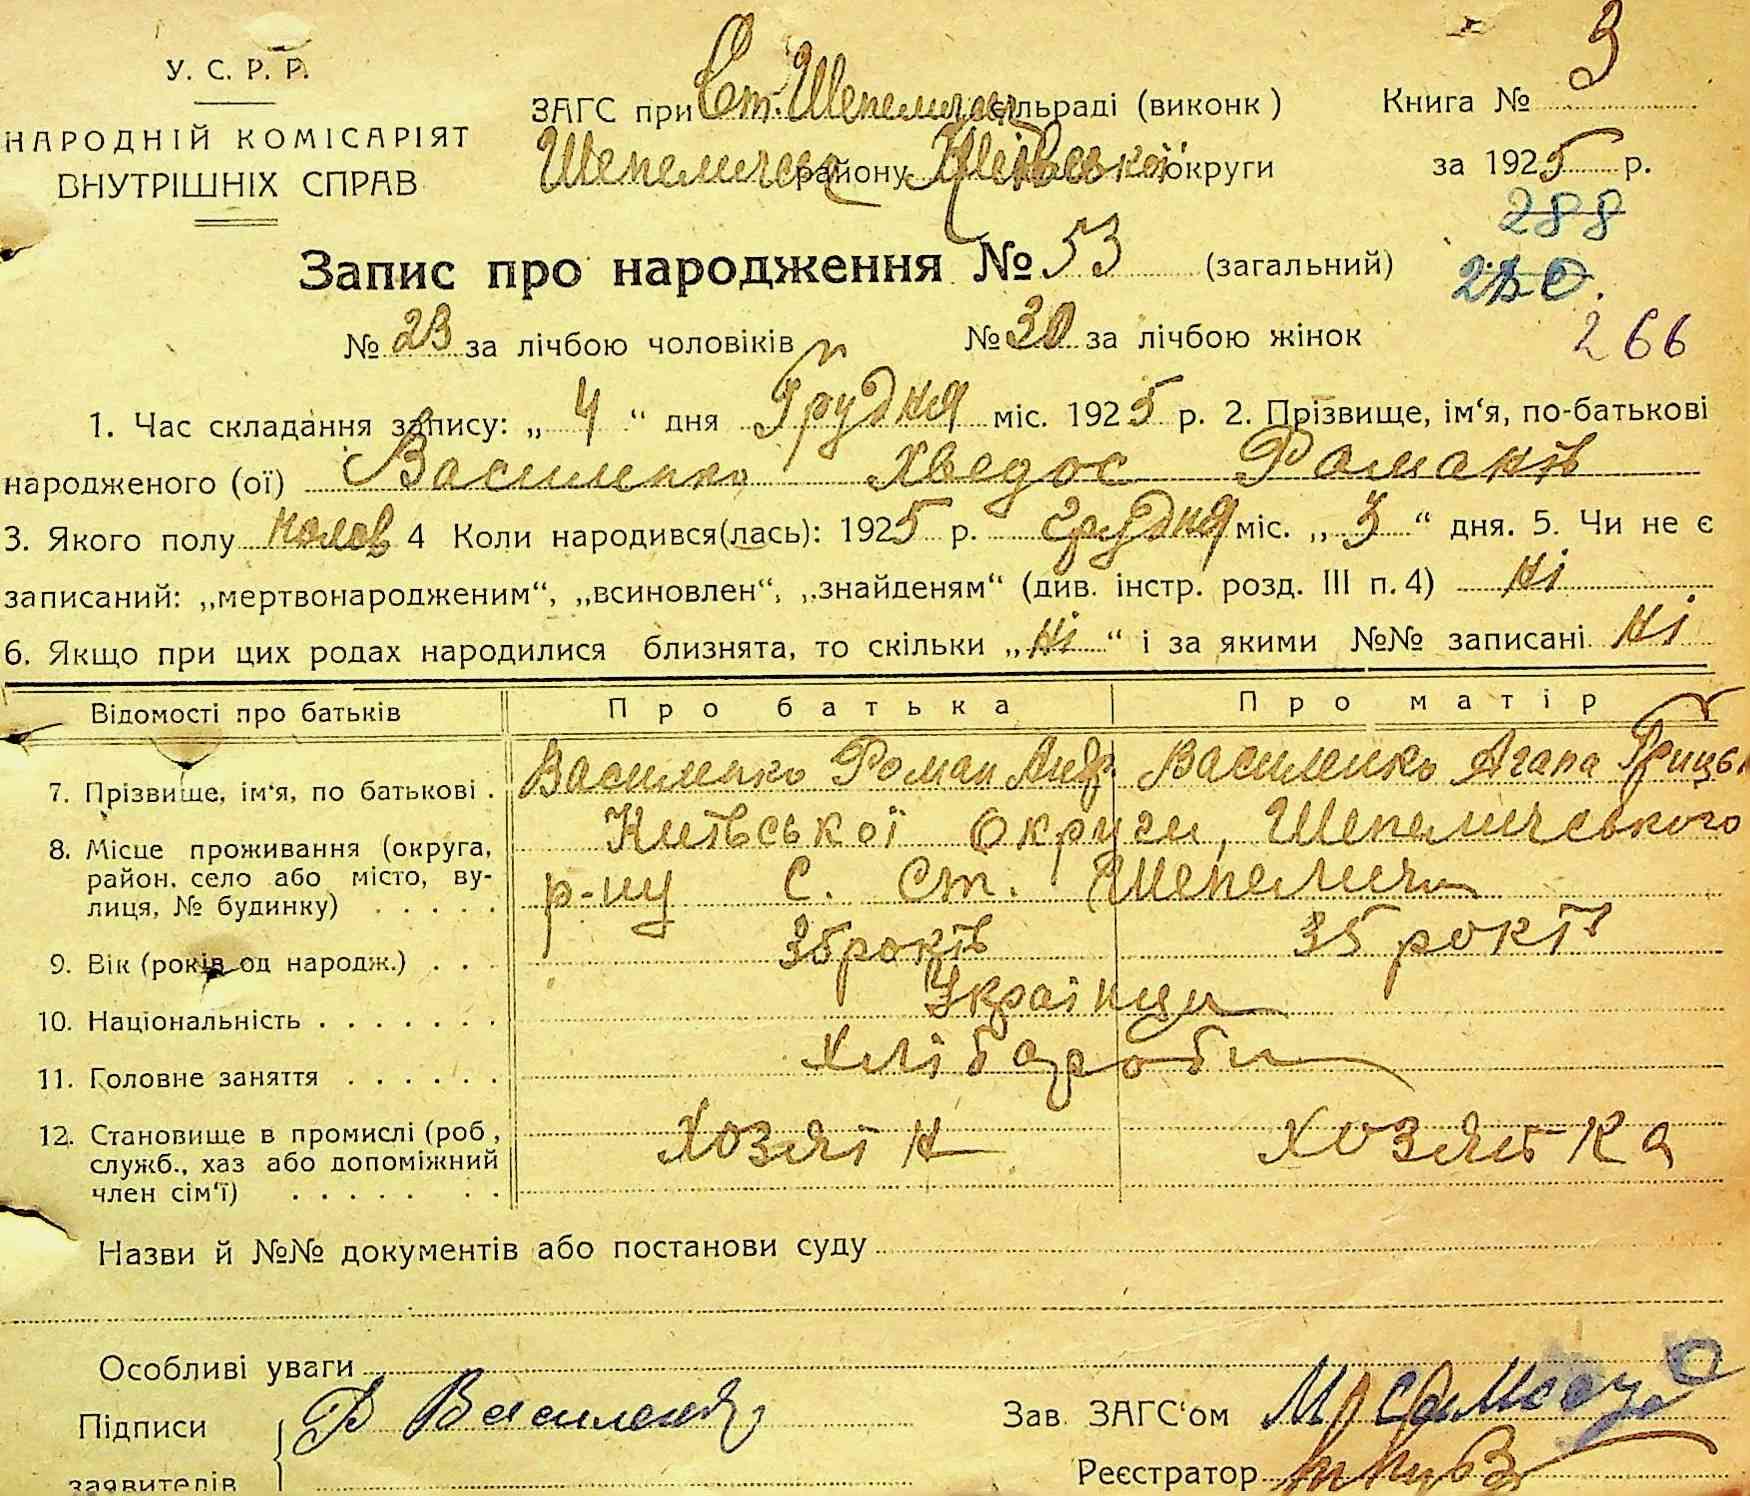 У. С. Р. Р.
НАРОДНІЙ КОМІСАРІЯТ
ВНУТРІШНІХ СПРАВ
ЗАГС при Ст. Шепелицькій сільраді (виконк)
Шепелическ району Київської округи
Книга № 3
за 1925 р.
288
266
Запис про народження № 53 (загальний)
№ 23 за лічбою чоловіків № 30 за лічбою жінок
1. Час складання запису: „ 4 “ дня Грудня міс. 1925 р. 2. Прізвище, ім‘я, по-батькові
народженого (ої) Василенко Хведос Романів
3. Якого полу чолов 4 Коли народився(лась): 1925 р. грудня міс. „ 3 “ дня. 5. Чи не є
записаний: „мертвонародженим“, „всиновлен“, „знайденям“ (див. інстр. розд. III п. 4) ні
6. Якщо при цих родах народилися близнята, то скільки „ ні “ і за якими №№ записані ні
Відомості про батьків Про батька Про матір
7. Прізвище, ім‘я, по батькові . Василенко Роман Андр. Василенко Агапа Грицьк
8. Місце проживання (округа, Київської Округи, Шепеличевского
район. село або місто, ву- р-ну с. Ст. Шепеличи
лиця, № будинку) . . . . .
9. Вік (років од народж.) . . . 35 років 35 років
10. Національність . . . . . . . Українци
11. Головне заняття . . . . . . Хлібароби
12. Становище в промислі (роб, Хозяїн Хозяйка
служб., хаз або допоміжний
член сім‘ї) . . . . . . .
Назви й №№ документів або постанови суду
Особливі уваги
Підписи Р Василенко
заявителів
Зав. ЗАГС‘ом
Реєстратор